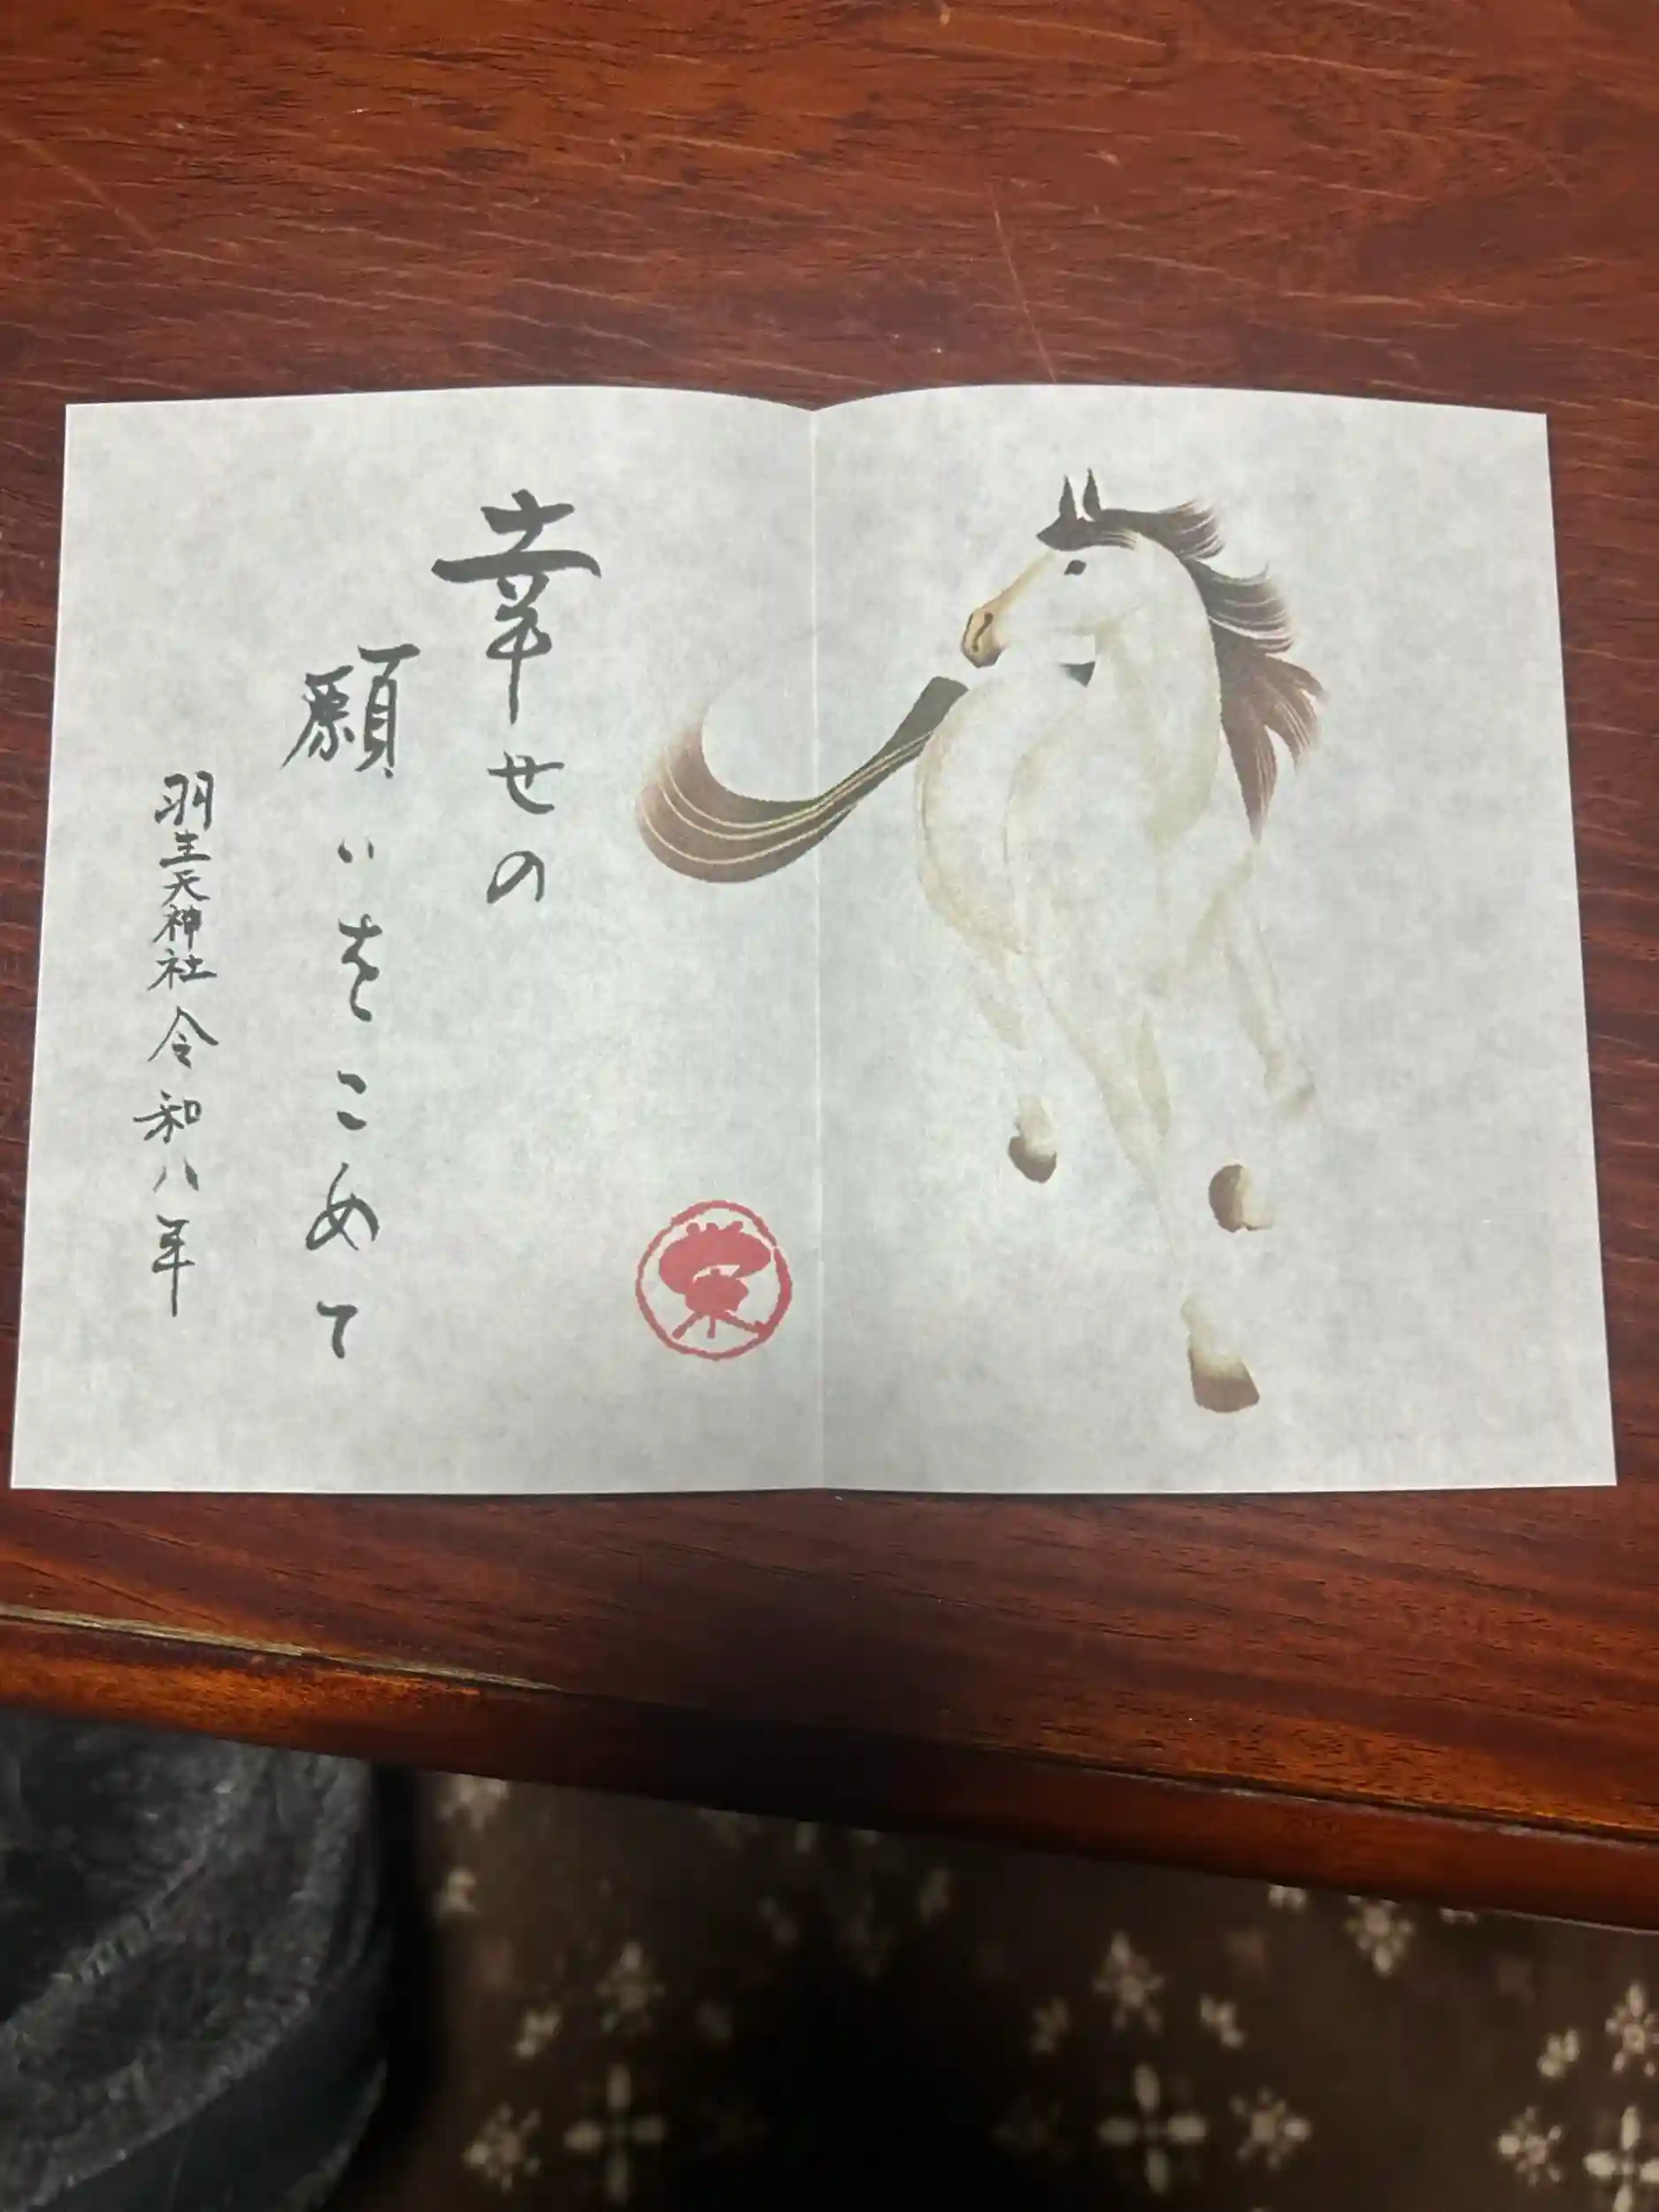 幸せの
願いをこめて
羽生天神社 令和八年